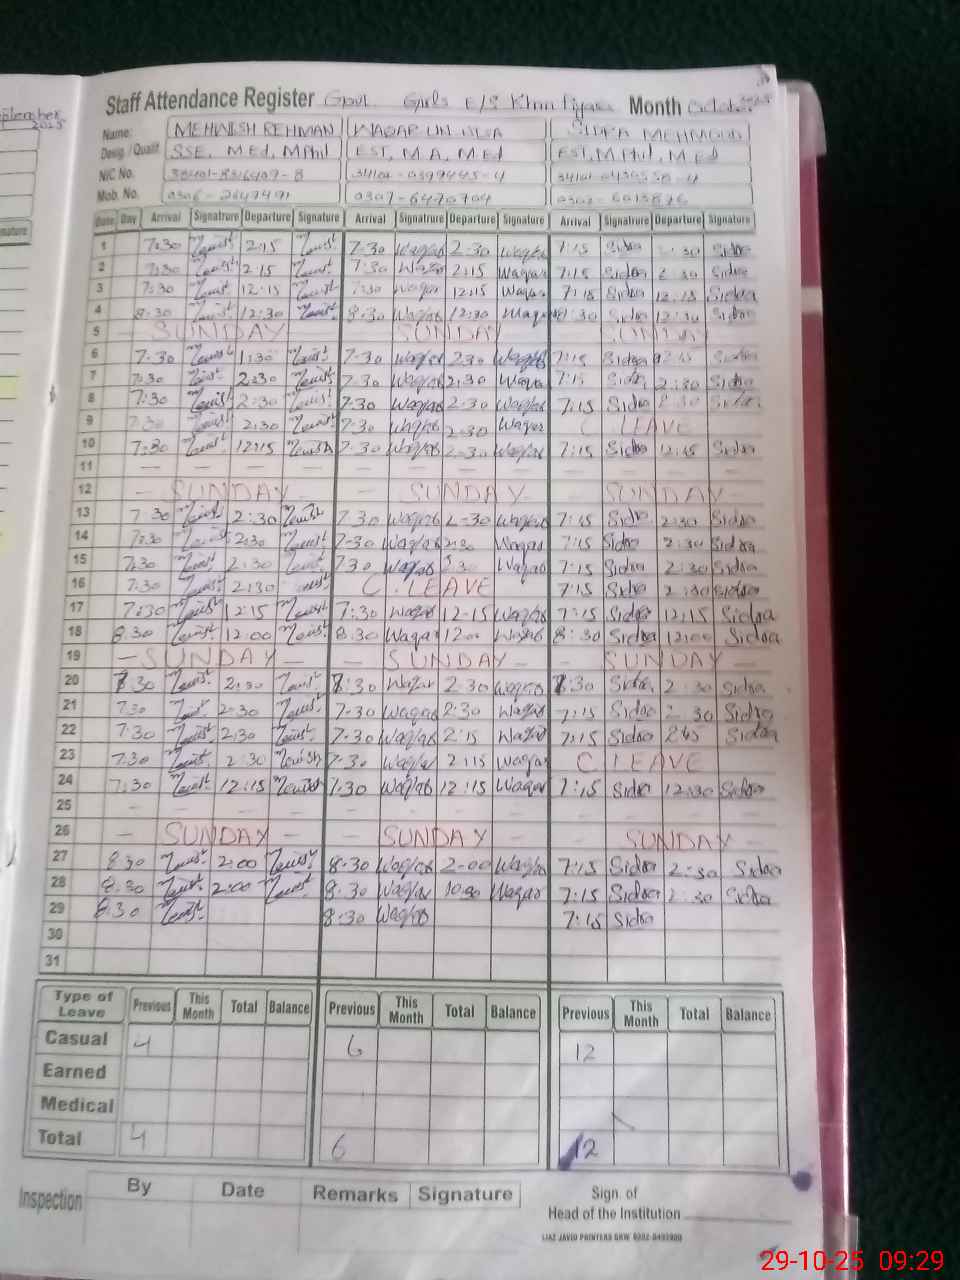 Staff Attendance Register Govt Girls E/S Month October 2025
September 2025
Name: MEHWISH REHMAN WAQAR UN NISA SIDRA MEHMOOD
Desig / Qualifi SSE, M.Ed, MPhil EST, M.A, M.Ed EST, M.Phil, M.Ed
NIC No.
Mob. No. 0307-6470704
Date Day Arrival Signatrure Departure Signature Arrival Signatrure Departure Signature Arrival Signatrure Departure Signature
1 7:30 2:15 7-30 Waqar 2-30 Waqar 7:15 Sidra 30 Sidra
2 7:30 2:15 7:30 Waqar 2:15 Waqar 7:15 Sidra 2:30 Sidra
3 7:30 12:15 7:30 Waqar 12:15 Waqar 7:15 Sidra 12:15 Sidra
4 8:30 12:30 8-30 Waqar 12:30 Waqar 8:30 Sidra 12:30 Sidra
5 SUNDAY SUNDAY SUNDAY
6 7-30 1:30 7-30 Waqar 2:30 Waqar 7:15 Sidra Sidra
7 7:30 2:30 7-30 Waqar 2:30 Waqar 7:15 Sidra 2:30 Sidra
8 7:30 2:30 7:30 Waqar 2-30 Waqar 7:15 Sidra 2:30 Sidra
9 7:30 2:30 7-30 Waqar 2-30 Waqar C. LEAVE
10 7:30 12:15 7-30 Waqar 2-30 Waqar 7:15 Sidra 12:45 Sidra
11 — — — — — — — — — — — —
12 — SUNDAY — — SUNDAY — — SUNDAY —
13 7:30 2:30 7:30 Waqar 2-30 Waqar 7:15 Sidra 2:30 Sidra
14 7:30 2:30 7-30 Waqar 2:30 Waqar 7:15 Sidra 2:30 Sidra
15 7:30 2:30 7:30 Waqar 2:30 Waqar 7:15 Sidra 2:30 Sidra
16 7:30 2:30 C. LEAVE 7:15 Sidra 2:30 Sidra
17 7:30 12:15 7:30 Waqar 12-15 Waqar 7:15 Sidra 12:15 Sidra
18 8:30 12:00 8:30 Waqar 12:00 Waqar 8:30 Sidra 12:00 Sidra
19 — SUNDAY — — SUNDAY — — SUNDAY —
20 8:30 2:30 8:30 Waqar 2:30 Waqar 8:30 Sidra 2:30 Sidra
21 7:30 2-30 7-30 Waqar 2:30 Waqar 7:15 Sidra 2:30 Sidra
22 7:30 2:30 7-30 Waqar 2:15 Waqar 7:15 Sidra 2:45 Sidra
23 7:30 2:30 7-30 Waqar 2:15 Waqar C. LEAVE
24 7:30 12:15 7:30 Waqar 12:15 Waqar 7:15 Sidra 12:30 Sidra
25 — — — — — — — — — — — —
26 — SUNDAY — — SUNDAY — — SUNDAY —
27 8:30 2:00 8-30 Waqar 2-00 Waqar 7:15 Sidra 2:30 Sidra
28 8:30 2:00 8:30 Waqar Waqar 7:15 Sidra 2:30 Sidra
29 8:30 8:30 Waqar 7:15 Sidra
30
31
Type of Leave Previous This Month Total Balance Previous This Month Total Balance Previous This Month Total Balance
Casual 4 6 12
Earned
Medical
Total 4 6 12
Inspection By Date Remarks Signature Sign. of
Head of the Institution
IJAZ JAVID PRINTERS GRW
29-10-25 09:29